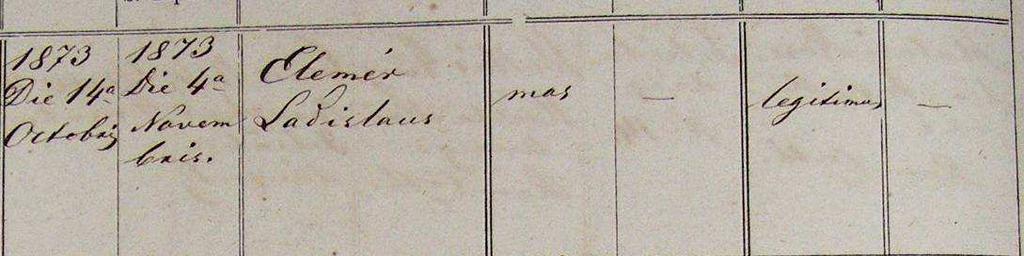 1873
Die 14a
Octobris
1873
Die 4a
Novem
bris.
Elemér
Ladislaus
mas
—
legitimus
—